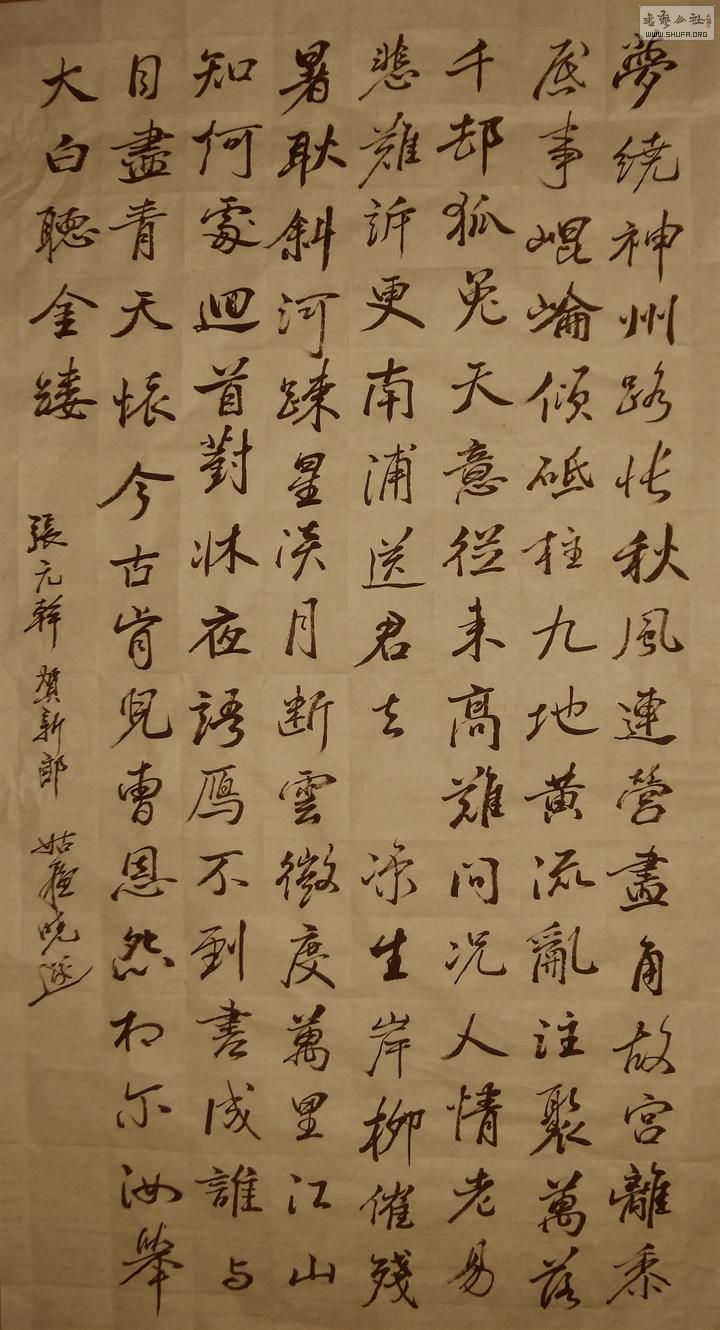 夢繞神州路悵秋風連營畫角故宮離黍
底事崐崘傾砥柱九地黃流亂注聚萬落
千邨狐兎天意從来高難问况人情老易
悲難訴更南浦送君去凉生岸柳催殘
暑耿斜河疎星淡月断雲微度萬里江山
知何處迴首對牀夜語鴈不到書成誰与
目盡青天懐今古肯兒曹恩怨相尔汝舉
大白聽金縷
張元幹賀新郎
WWW.SHUFA.ORG